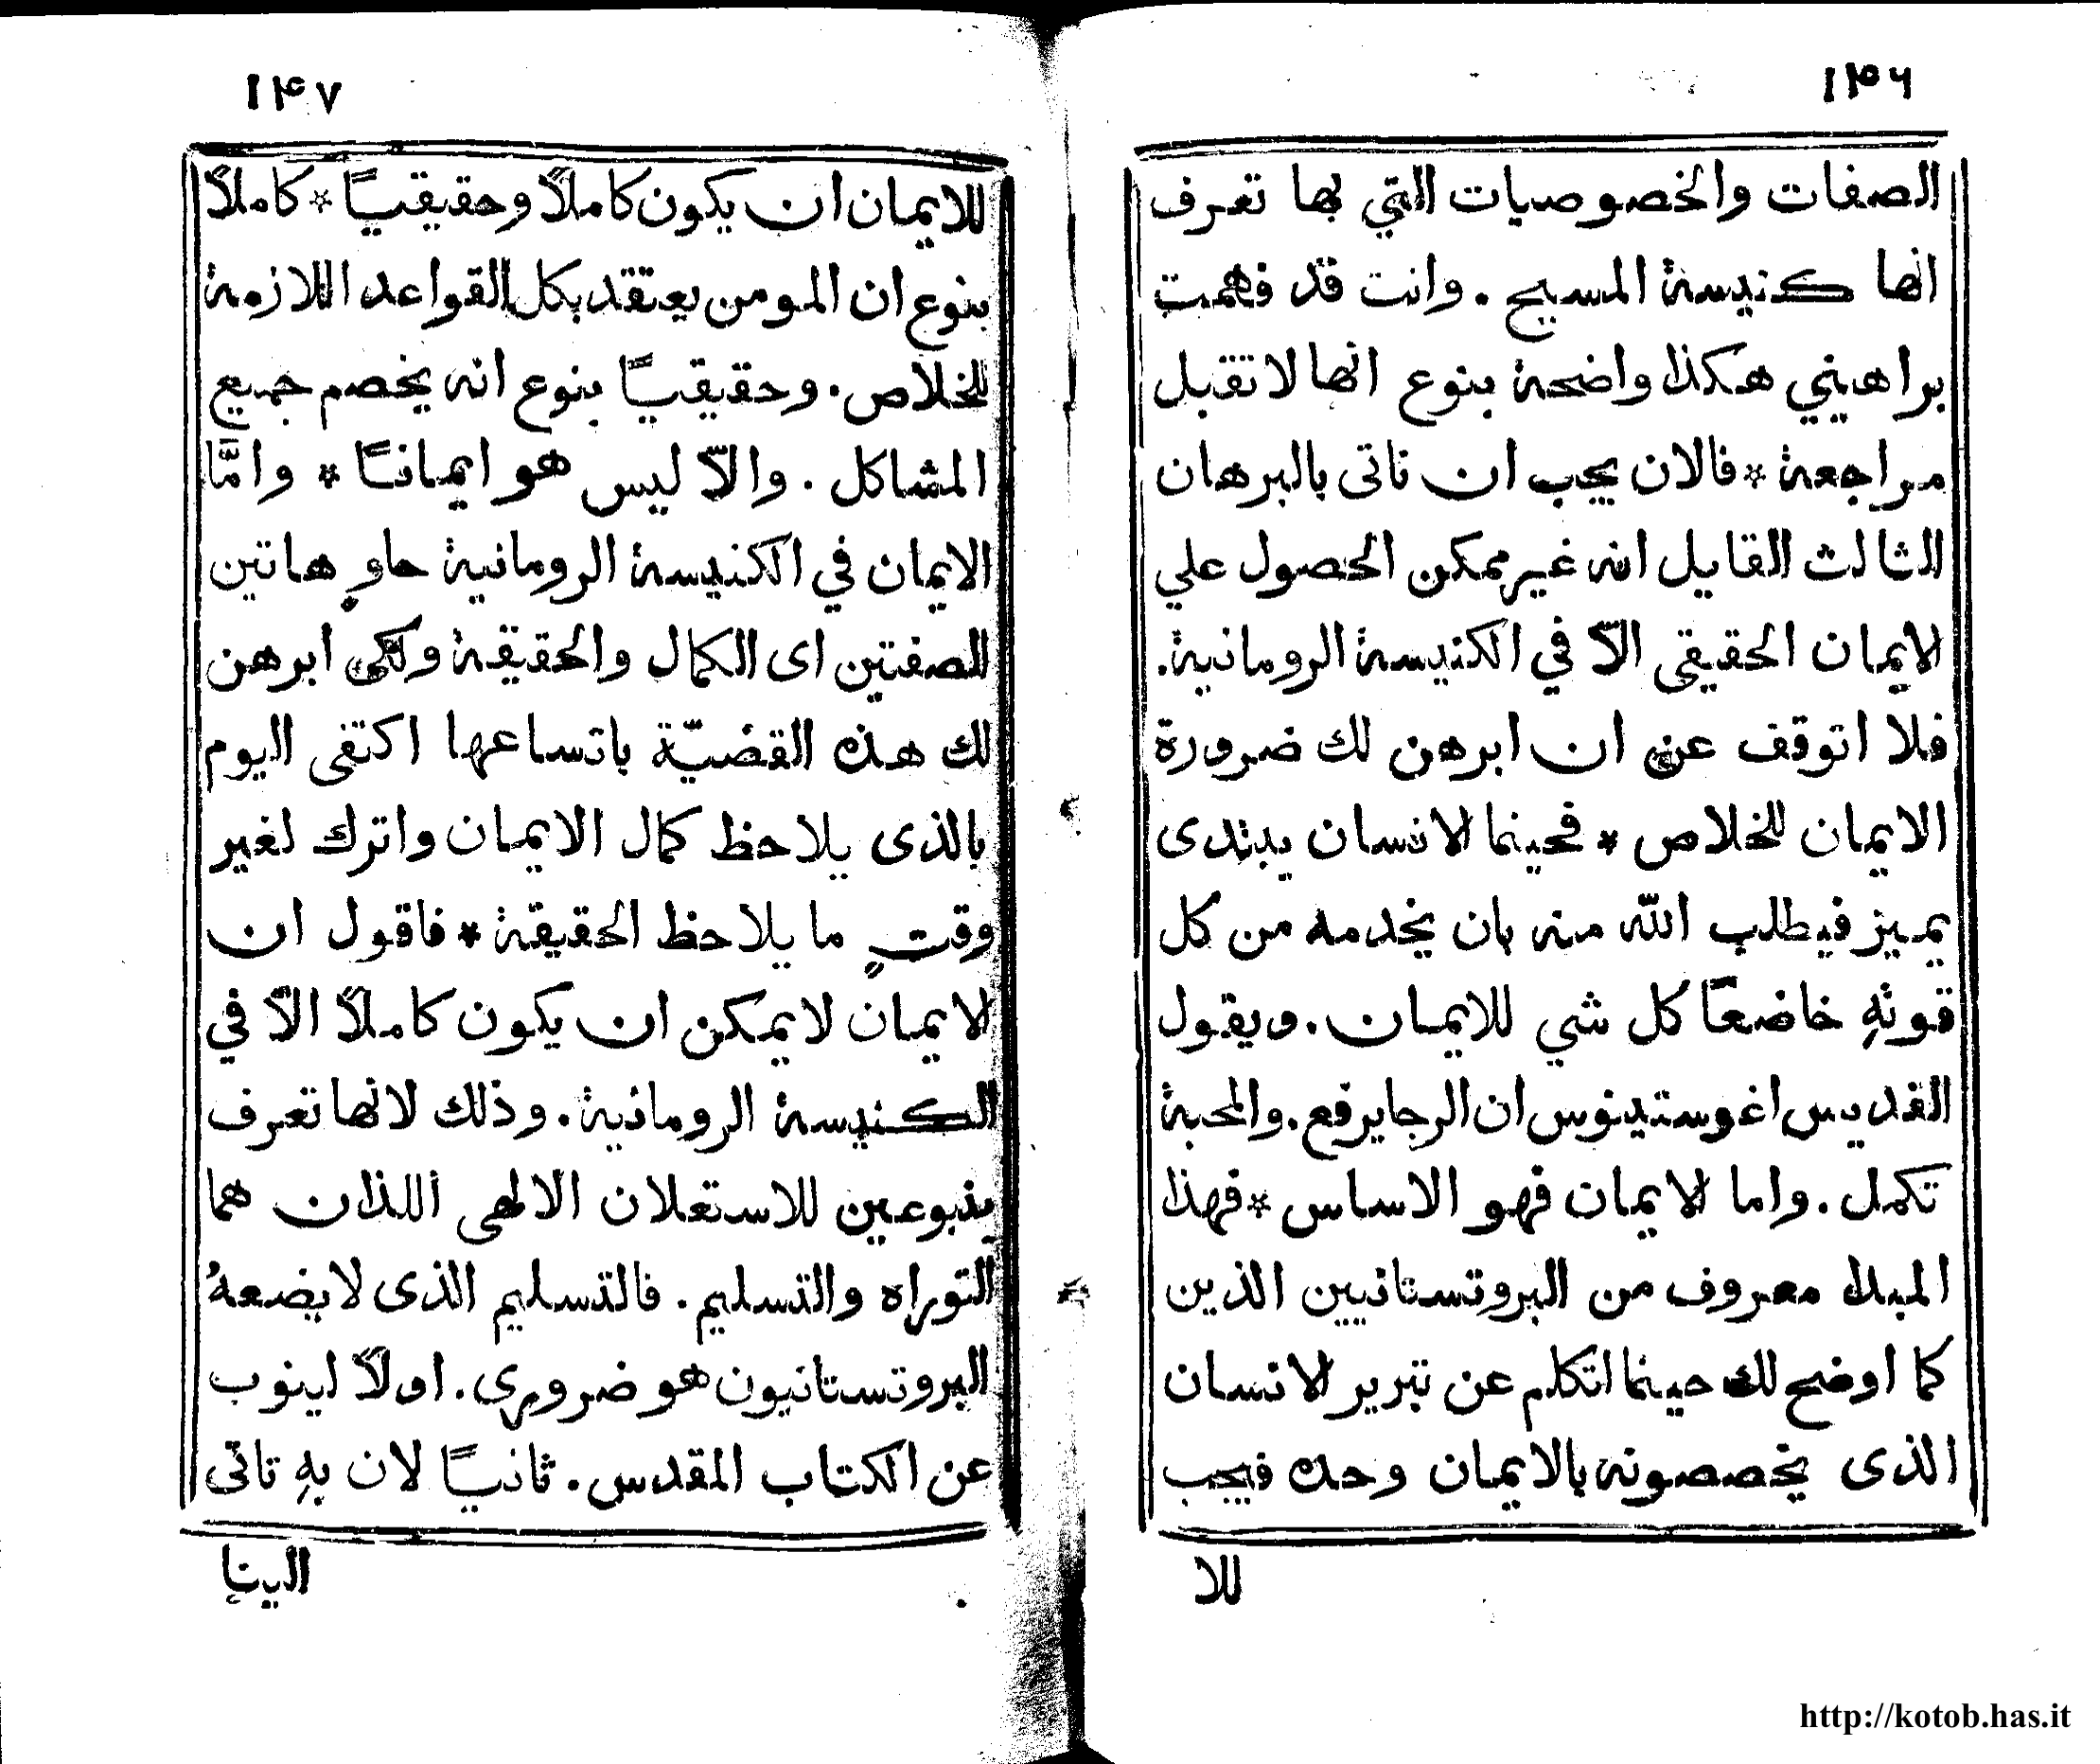 ١٤٦
الصفات والخصوصيات التي بها تعرف
انها كنيسة المسيح . وانت قد فهمت
براهيني هكذا واضحة بنوع انها لا تقبل
مراجعة * فالان يجب ان ناتى بالبرهان
الثالث القايل انه غير ممكن الحصول علي
الايمان الحقيقى الّا في الكنيسة الرومانية .
فلا اتوقف عن ان ابرهن لك ضرورة
الايمان للخلاص * فحينما الانسان يبتدى
يميز فيطلب الله منه بان يخدمه من كل
قوتهِ خاضعًا كل شي للايمان . ويقول
القديس اغوستينوس ان الرجا يرفع . والمحبة
تكمل . واما الايمان فهو الاساس * فهذا
المبدا معروف من البروتستانيين الذين
كما اوضح لك حينما اتكلم عن تبرير الانسان
الذى يخصصونه بالايمان وحده فيجب
للا
١٤٧
للايمان ان يكون كاملاً وحقيقيًا * كاملاً
بنوع ان المومن يعتقد بكل القواعد اللازمة
للخلاص . وحقيقيًا بنوع انه يخصم جميع
المشاكل . والّا ليس هو ايمانًا * وامَّا
الايمان في الكنيسة الرومانية حاوٍ هاتين
الصفتين اى الكمال والحقيقة ولكى ابرهن
لك هذه القضيّة باتساعها اكتفى اليوم
بالذى يلاحظ كمال الايمان واترك لغير
وقتٍ ما يلاحظ الحقيقة * فاقول ان
الايمان لا يمكن ان يكون كاملاً الّا في
الكنيسة الرومانية . وذلك لانها تعرف
ينبوعين للاستعلان الالهى اللذان هما
التوراه والتسليم . فالتسليم الذى لا يضعهُ
البروتستانيون هو ضرورى . اولاً لينوب
عن الكتاب المقدس . ثانيًا لان بهِ تاتى
الينا
http://kotob.has.it